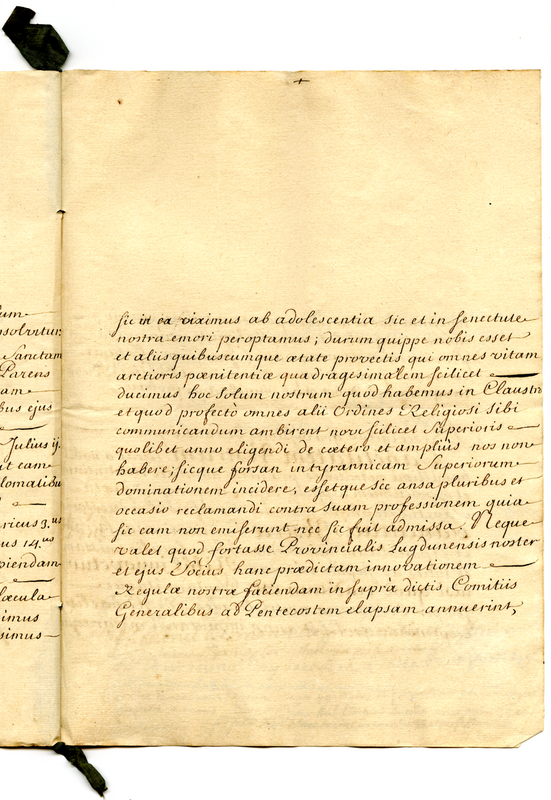 um
solvitur
Sanctam
Parens
am
bus ejus
Julius ij.
it eam
lomatibus
ricus 3.us
us 14.us
piendam
læcula
imus
simus
sic in ea viximus ab adolescentia sic et in senectute
nostra emori peroptamus; durum quippe nobis esset
et aliis quibuscumque ætate provectis qui omnes vitam
arctioris pœnitentiæ quadragesimalem scilicet
ducimus hoc solum nostrum quod habemus in Claustro
et quod profecto omnes alii Ordines Religiosi sibi
communicandum ambirent novi scilicet Superioris
quolibet anno eligendi de cætero et ampliùs nos non
habere; sicque forsan in tyrannicam Superiorum
dominationem incidere, essetque sic ansa pluribus et
occasio reclamandi contra suam professionem quia
sic eam non emiserunt nec sic fuit admissa. Neque
valet quod fortasse Provincialis Lugdunensis noster
et ejus Socius hanc prædictam innovationem
Regulæ nostræ faciendam in suprà dictis Comitiis
Generalibus ad Pentecostem elapsam annuerint,